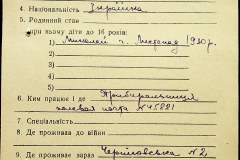 4. Національність Українка
5. Родинний стан
при ньому діти до 16 років:
1) Миколай г. Листопад 1930 р.
2)
3)
4)
5)
6. Ким працює і де Прибиральниця
полевая почта № 45221
7. Спеціальність
8. Де проживав до війни
9. Де проживає зараз Чернігівська № 2